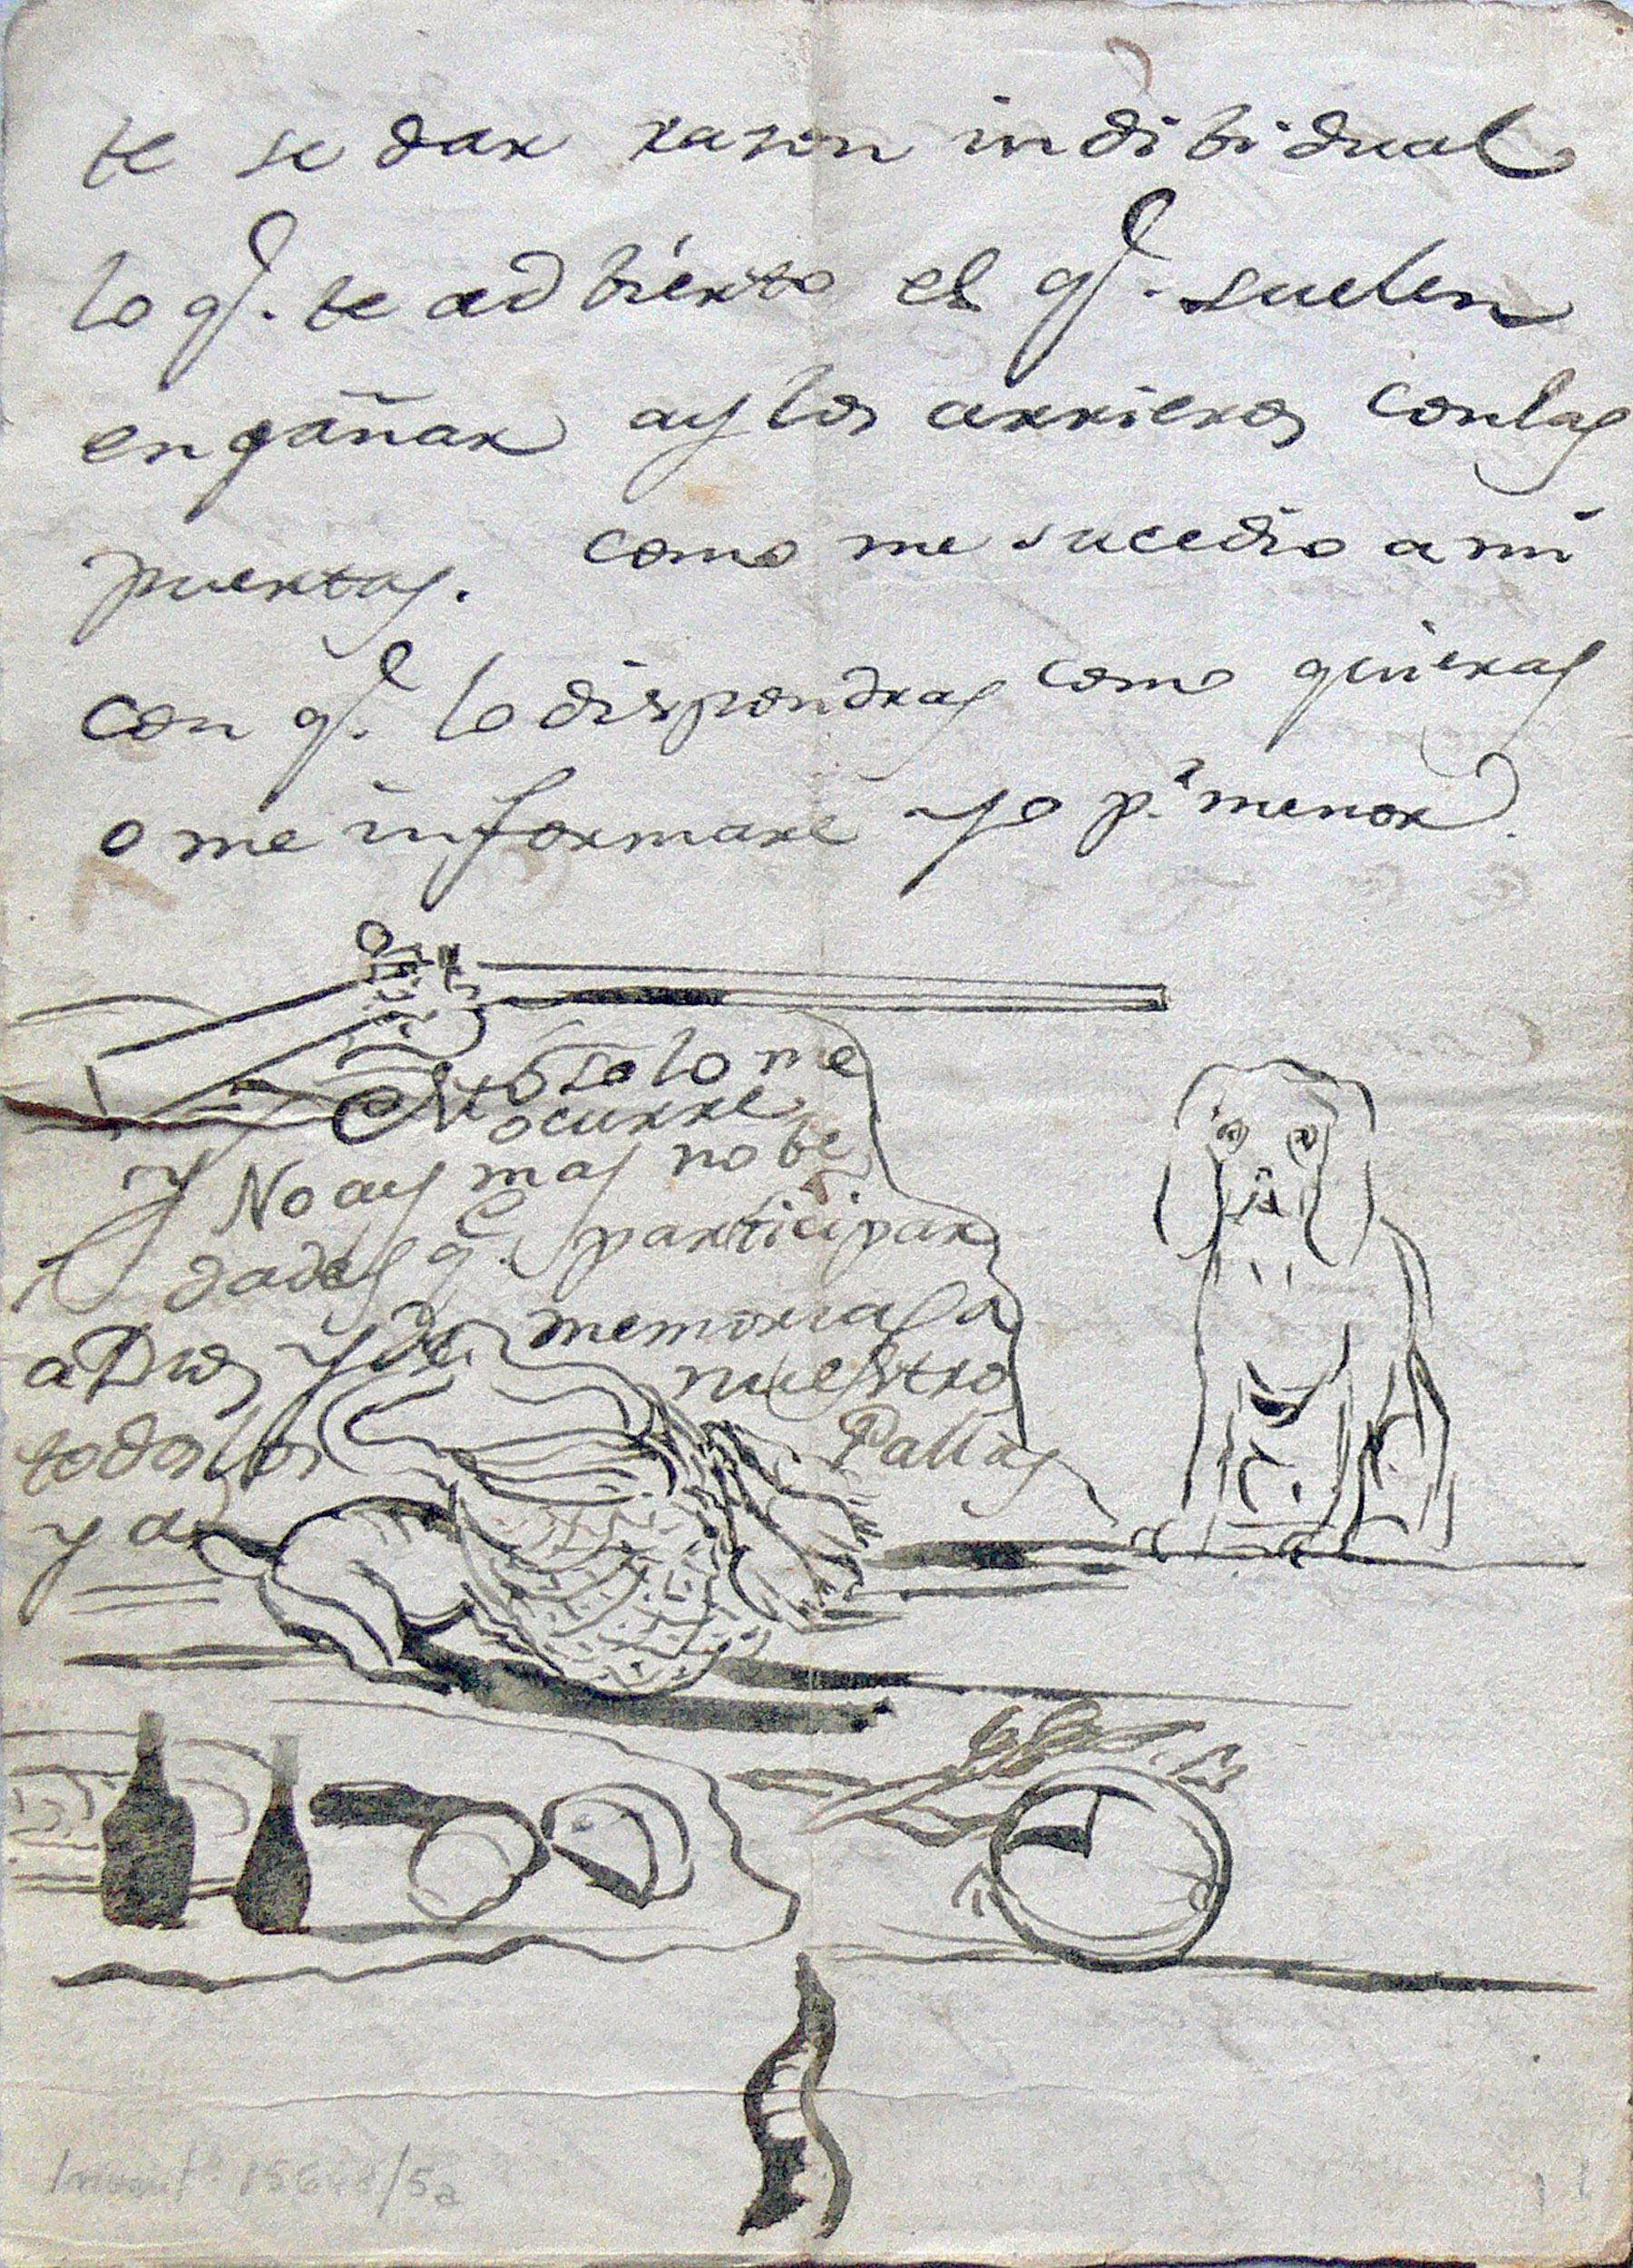 te se dar rason indibidual
lo q.e te adbierto es q.e suelen
engañar ay los arrieros con las
puertas. como me sucedio a mi
con q.e lo dispondras como quieras
o me informare yo p.r menor.
solo me
ocurre
y No ay mas nobe
dades q.e participar
a Dios y da memorias a
nuestro
todos los
Pallas
y a
Invent.º 15648/5a